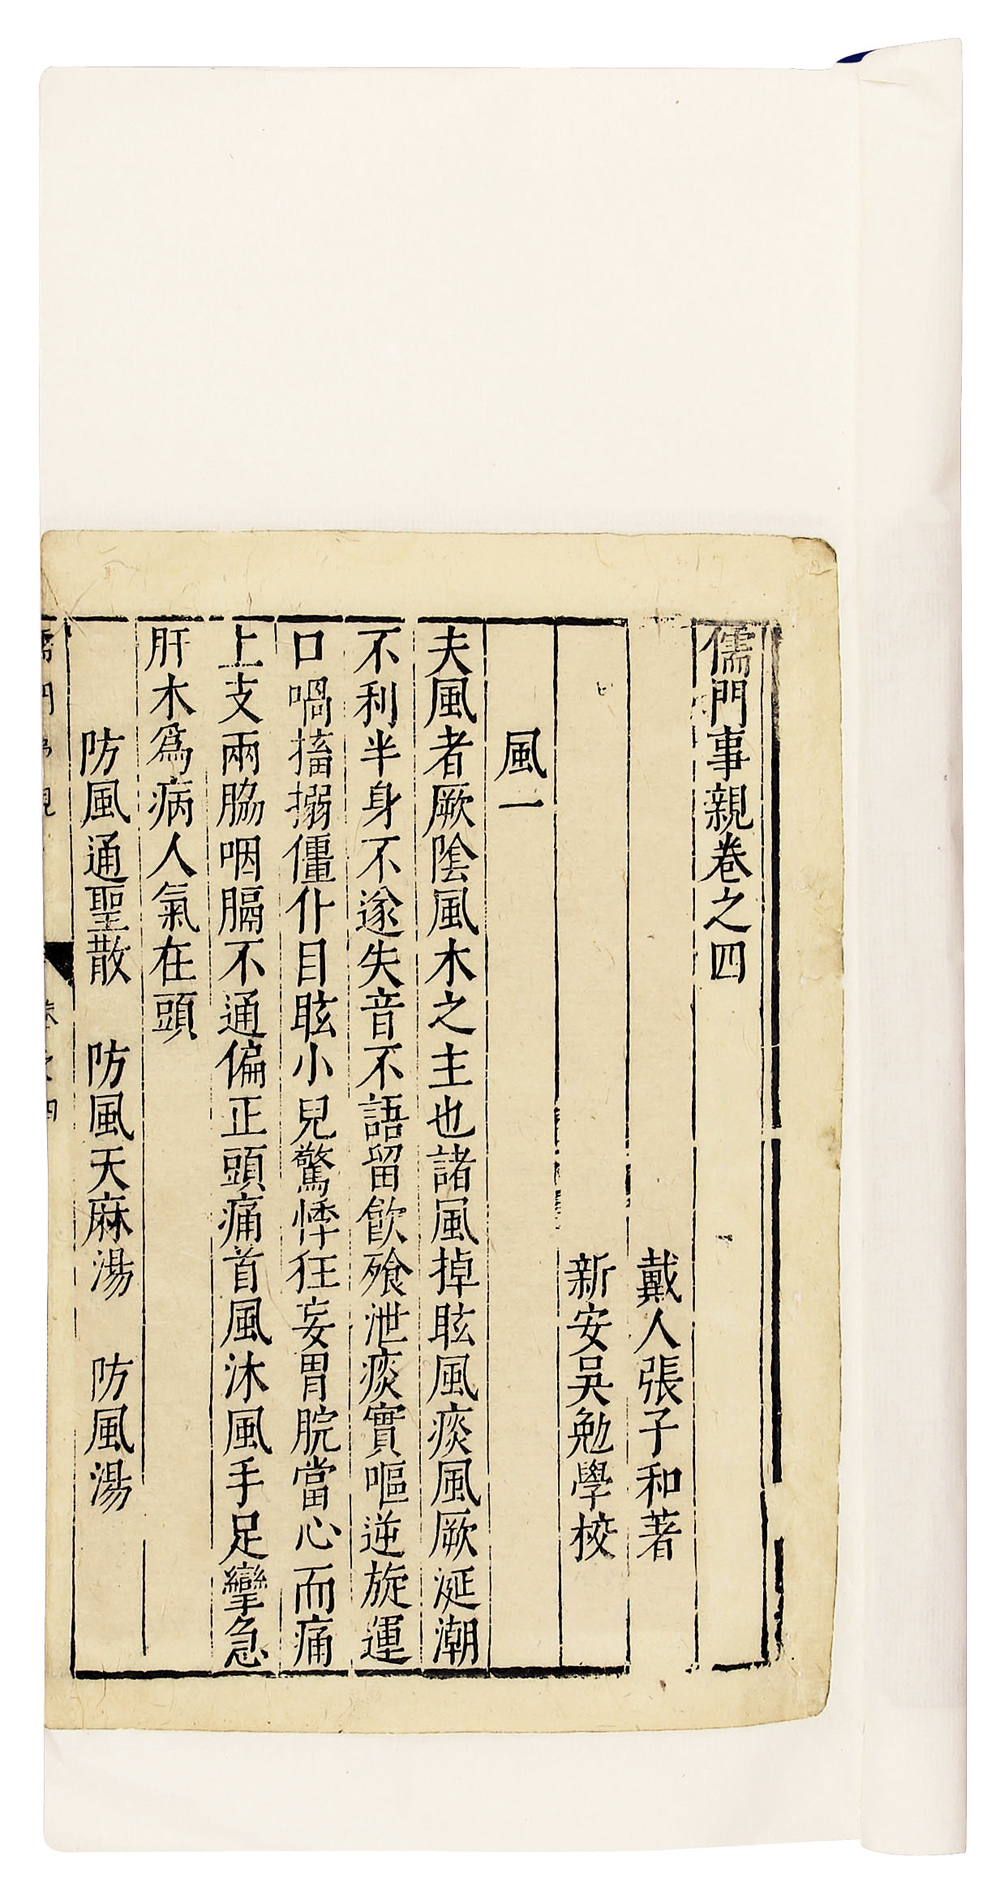 儒門事親卷之四
戴人張子和著
新安吳勉學校
風一
夫風者厥陰風木之主也諸風掉眩風痰風厥涎潮
不利半身不遂失音不語留飲飧泄痰實嘔逆旋運
口喎搐搦僵仆目眩小兒驚悸狂妄胃脘當心而痛
上支兩脇咽膈不通偏正頭痛首風沐風手足攣急
肝木爲病人氣在頭
防風通聖散　防風天麻湯　防風湯